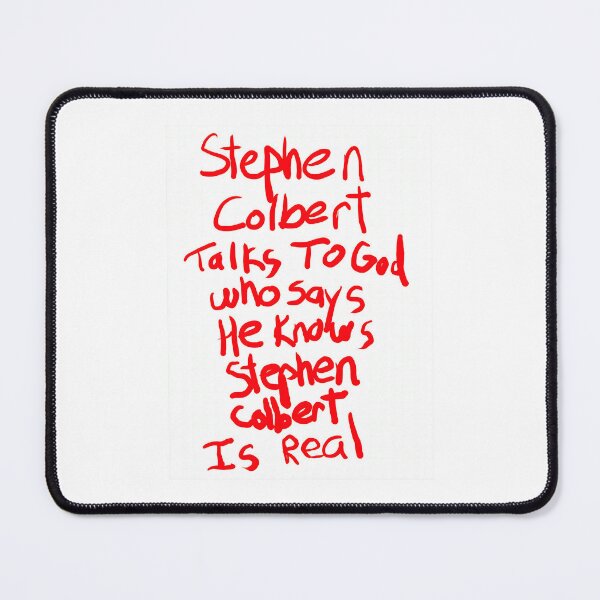 Stephen
Colbert
Talks To God
who says
He Knows
Stephen
Colbert
Is Real